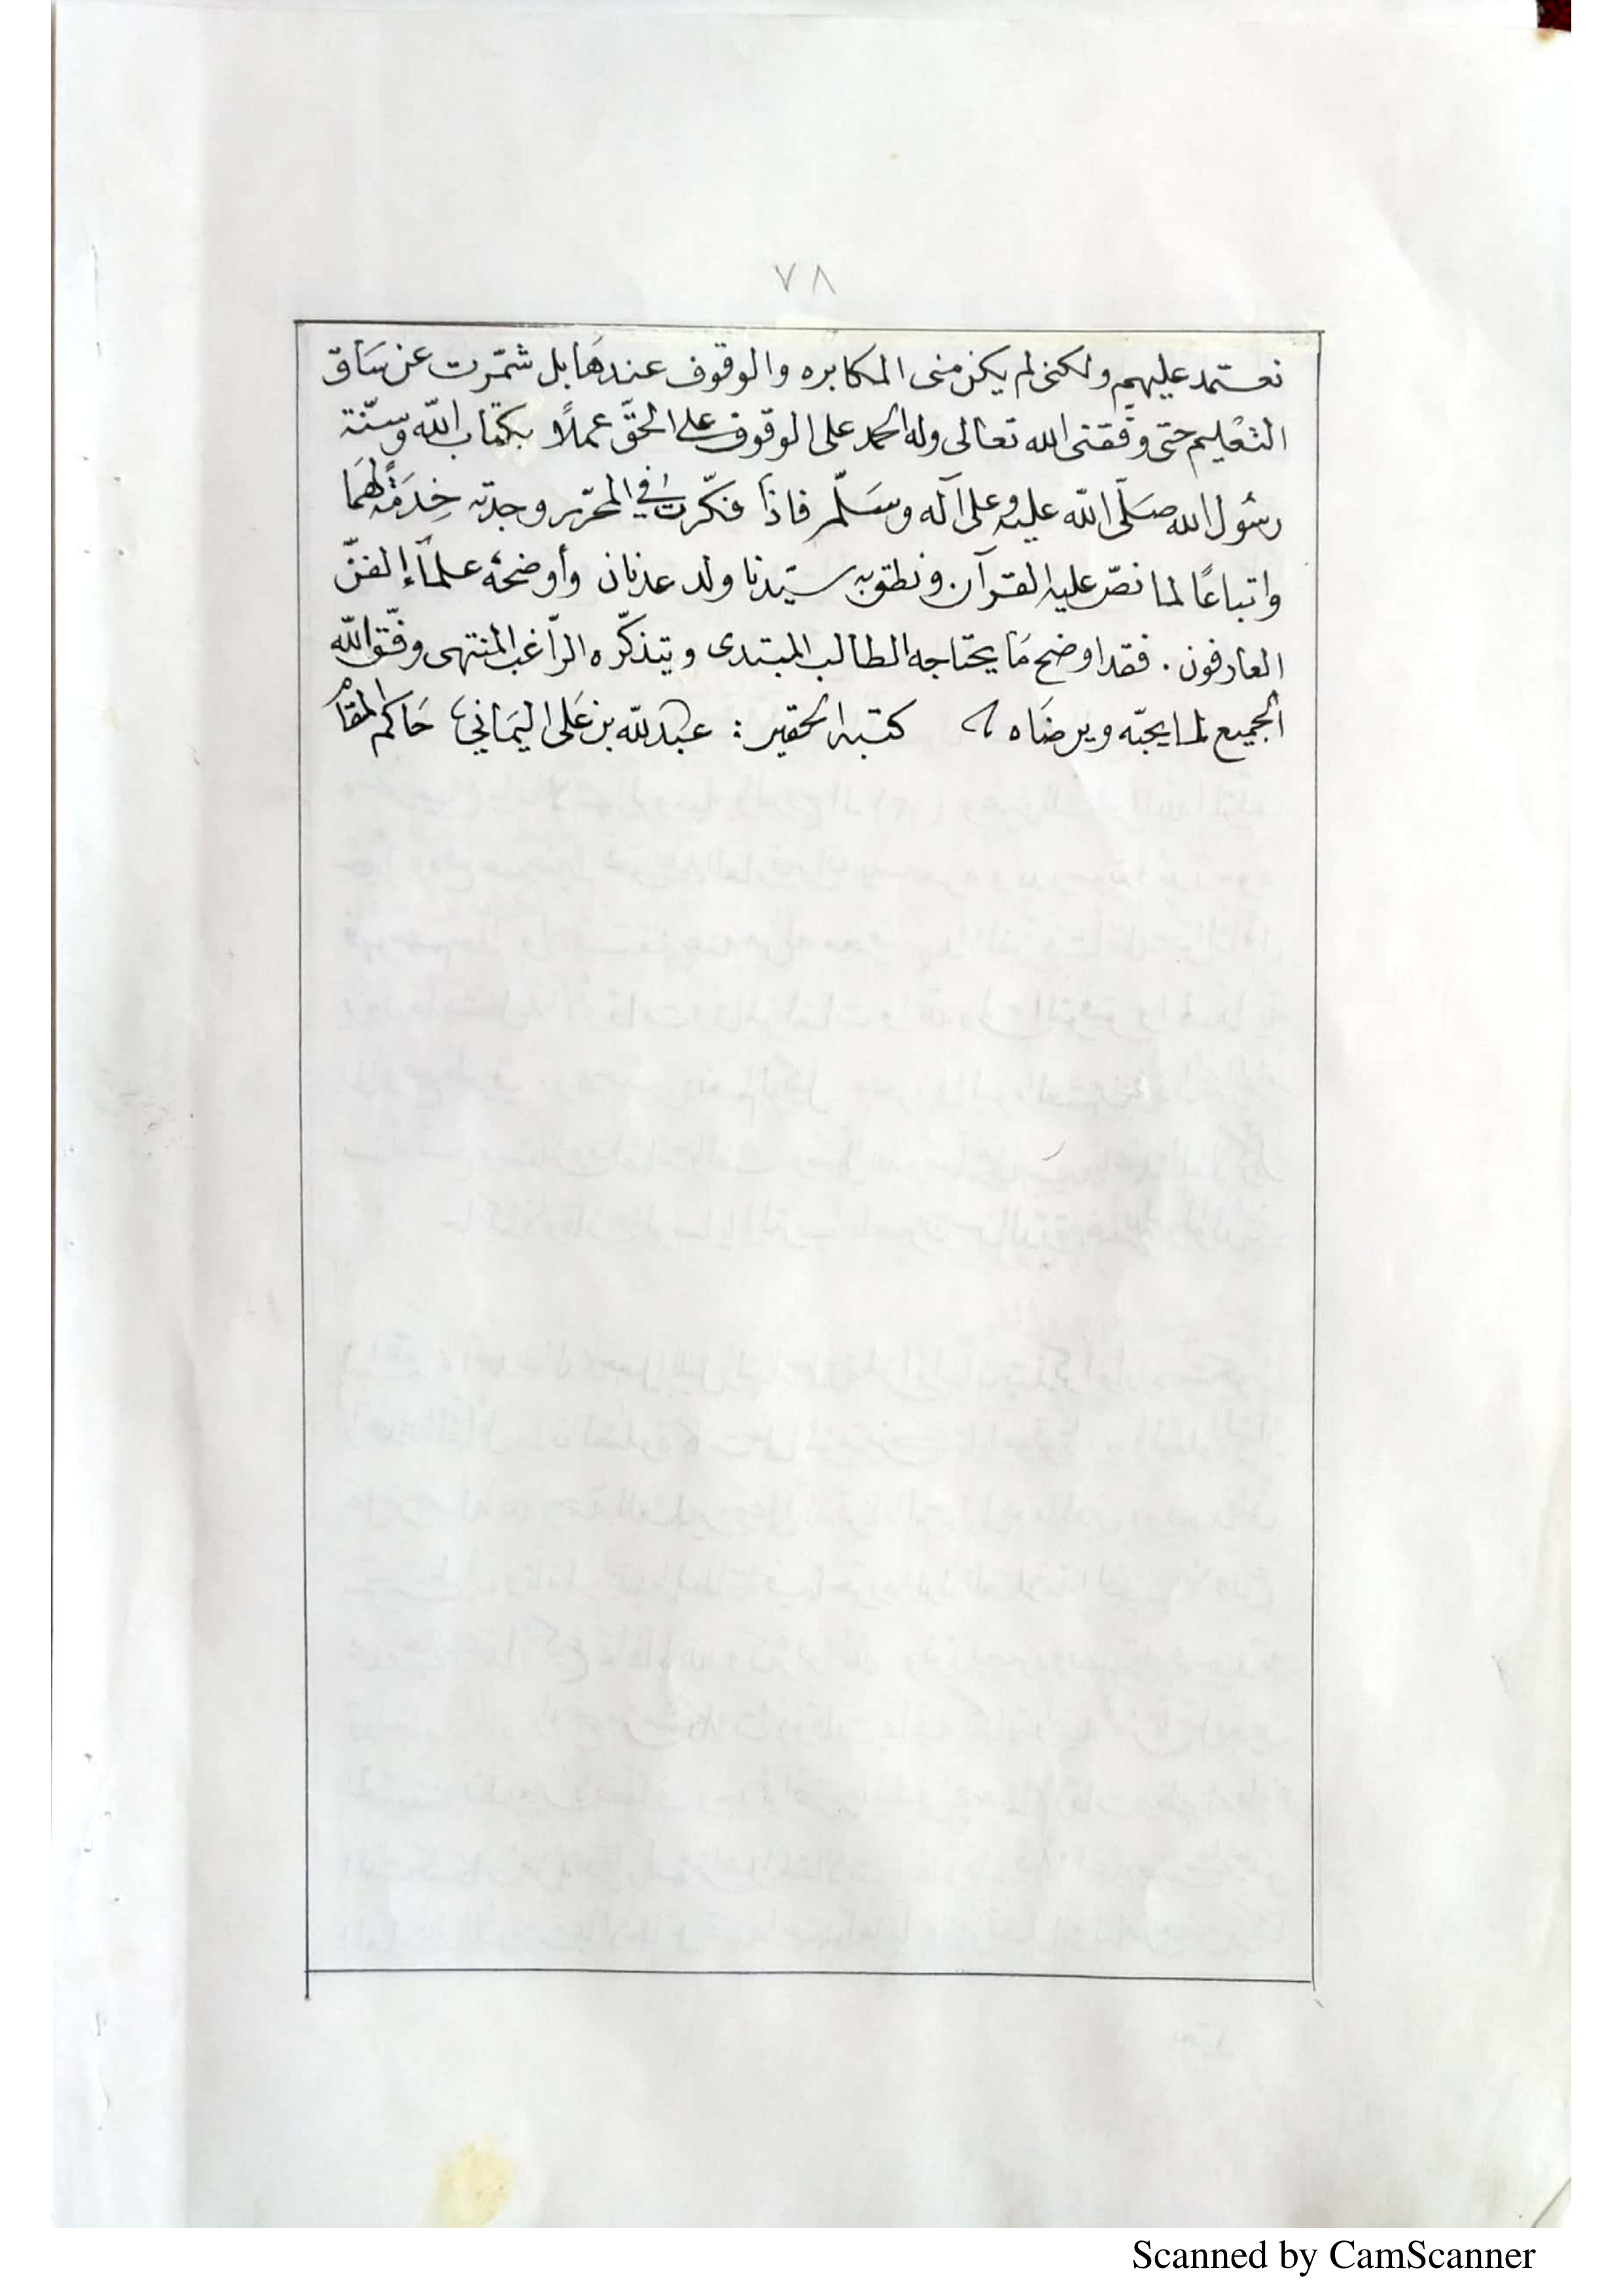 ٧٨
نعتمد عليهم ولكنى لم يكن منى المكابره والوقوف عندهَا بل شمّرت عن سَاق
التعْليم حتى وفَّقنى الله تعالى وله الحمد على الوقوف على الحقّ عملًا بكتاب اللّه وسنّة
رسُول الله صَلّى اللّه عليه وعلى آله وسَلّم فاذَا فكّرت في المحرّر وجدته خِدَمةً لهَما
واتباعًا لما نصّ عليه القرآن ونطق به سيّدنا ولد عدنان وأوضحهُ علمآء الفنّ
العارفون . فقد اوضح مَا يحتاجه الطالب المبتدى ويتذكّره الرّاغب المنتهى وفّق اللّه
الجميع لما يحبّه ويرضَاه كتبه الحقير : عبداللّه بن عَلى اليَمانيْ حَاكم المقَام
Scanned by CamScanner